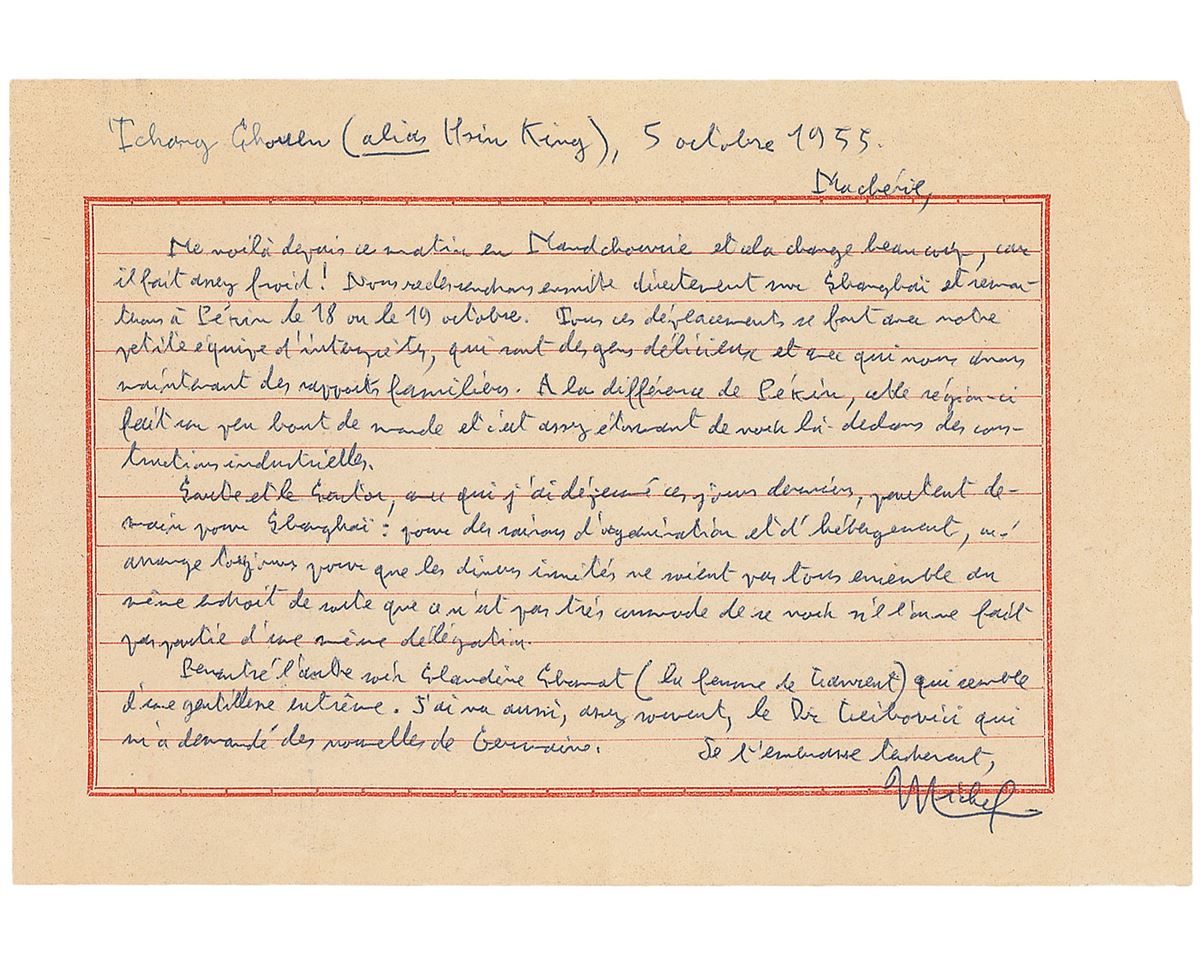 Tchang Chouen (alias Hsin King), 5 octobre 1955.
Ma chérie,
Me voilà depuis ce matin en Mandchourie et cela change beaucoup, car
il fait assez froid! Nous redescendrons ensuite directement sur Changhaï et remon-
terons à Pékin le 18 ou le 19 octobre. Tous ces déplacements se font avec notre
petite équipe d'interprètes, qui sont des gens délicieux et avec qui nous avons
maintenant des rapports familiers. A la différence de Pékin, cette région-ci
fait un peu bout de monde et c'est assez étonnant de voir là-dedans des cons-
tructions industrielles.
Sartre et le Castor, avec qui j'ai déjeuné ces jours derniers, partent de-
main pour Changhaï: pour des raisons d'organisation et d'hébergement, on s'
arrange toujours pour que les divers invités ne soient pas tous ensemble au
même endroit de sorte que ce n'est pas très commode de se voir si l'on ne fait
pas partie d'une même délégation.
Rencontré l'autre soir Claudine Chonat (la femme de Laurent) qui semble
d'une gentillesse extrême. J'ai vu aussi, assez souvent, le Dr Leibovici qui
m'a demandé des nouvelles de Germaine. Je t'embrasse tendrement,
Michel